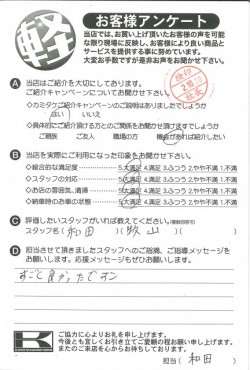 軽
お客様アンケート
当店では、お買い上げ頂いたお客様の声を可能
な限り現場に反映し、お客様により良い商品と
サービスを提供する事に努めています。
大変お手数ですが是非お声をお聞かせ下さい。
A 当店はご紹介を大切にしております。
ご紹介キャンペーンについてお聞かせ下さい。
◇カミタケご紹介キャンペーンのご説明はありましたでしょうか
はい いいえ
◇具体的にご紹介頂ける方とのご関係をお聞かせ頂けますでしょうか
ご親族 ご友人 職場の方 機会があれば紹介したい
B 当店を実際にご利用になった印象をお聞かせ下さい。
◇総合的な満足度 5.大満足 4.満足 3.ふつう 2.やや不満 1.不満
◇スタッフの対応 5.大満足 4.満足 3.ふつう 2.やや不満 1.不満
◇お店の雰囲気、清掃 5.大満足 4.満足 3.ふつう 2.やや不満 1.不満
◇納車時のお車の状態 5.大満足 4.満足 3.ふつう 2.やや不満 1.不満
C 評価したいスタッフがいれば教えてください。(複数回答可)
スタッフ名(和田)(阪山)
D 担当させて頂きましたスタッフへのご感想、ご指導メッセージを
お願いします。応援メッセージもぜひお願いします。
すごく良かったです
K
ご協力に心よりお礼を申し上げます。
今後とも宜しくお引き立てご愛顧の程お願い申し上げます。
またのご来店を心からお待ちしております。
担当(和田)